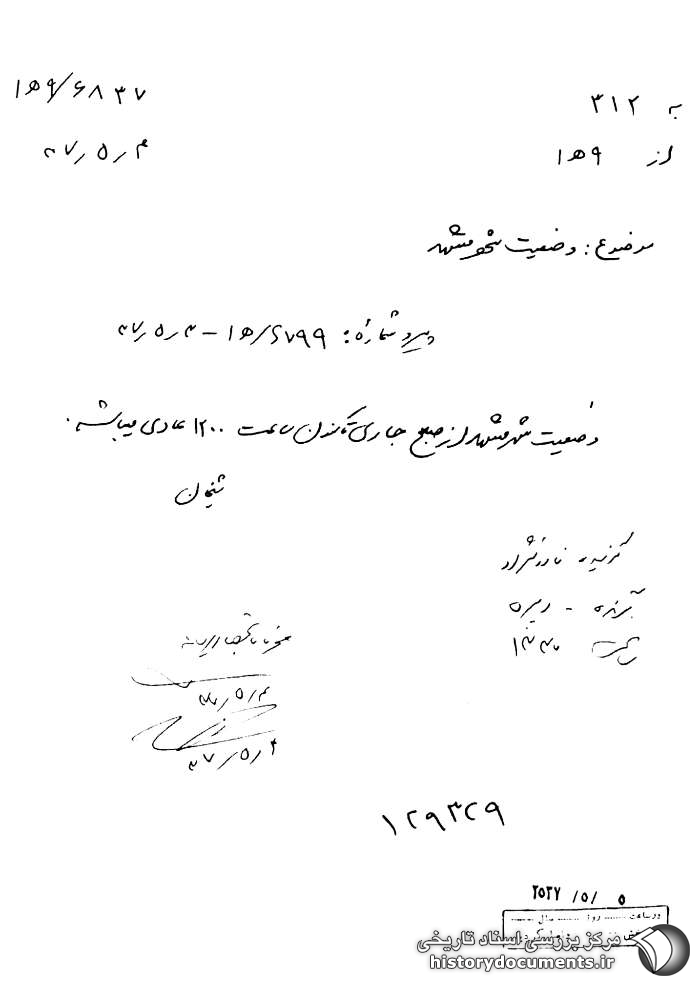 به ۳۱۲
از ۹ه۱
۹ه۱/۶۸۳۷
۳۷/۵/۴
موضوع: وضعیت شهر مشهد
پیرو شماره: ۱ه/۶۷۹۹ – ۳۷/۵/۳
وضعیت شهر مشهد از صبح جاری تاکنون ساعت ۱۲۰۰ عادی میباشد.
شیخان
گیرنده
ساعت
۳۷/۵/۴
۳۷/۵/۴
۱۲۹۳۲۹
۲۵۳۷ /۵/ ۵
مرکز بررسی اسناد تاریخی
historydocuments.ir